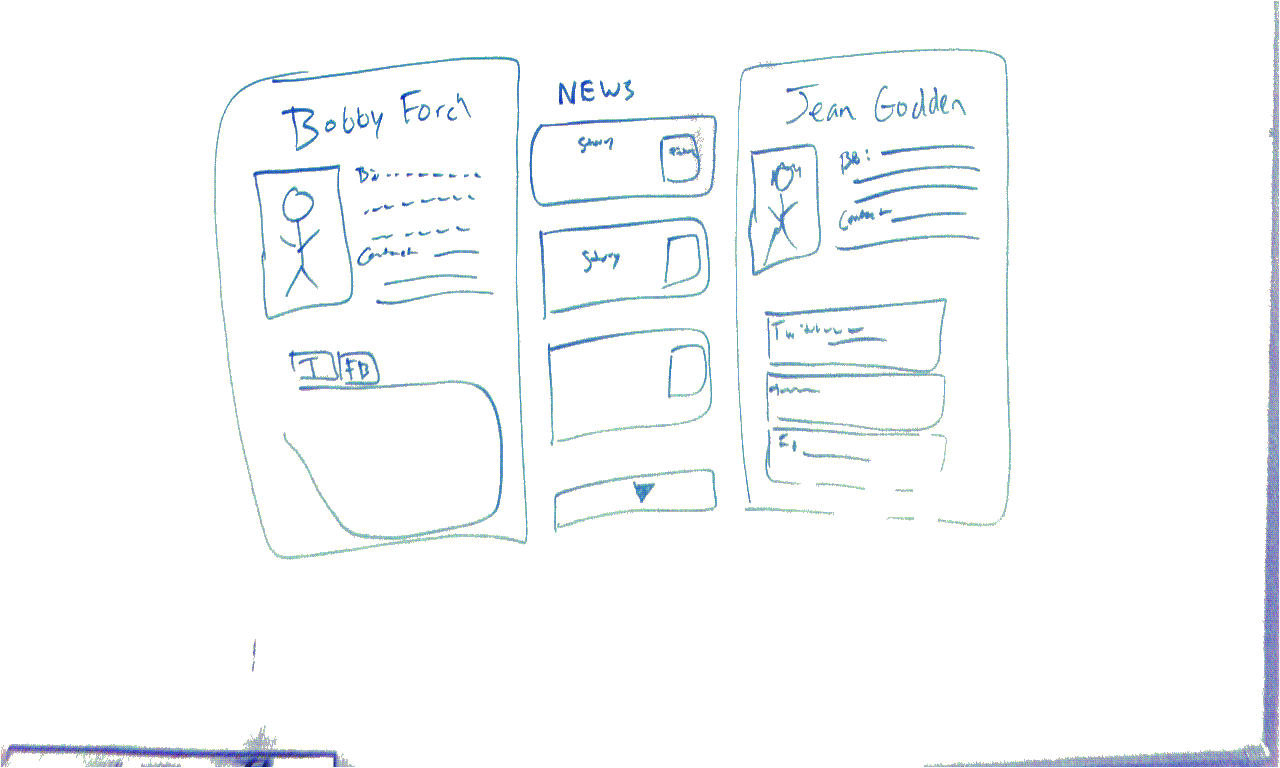 Bobby Forch
Bio
Contact
T FB
NEWS
Story
Story
Jean Godden
Bio:
Contact